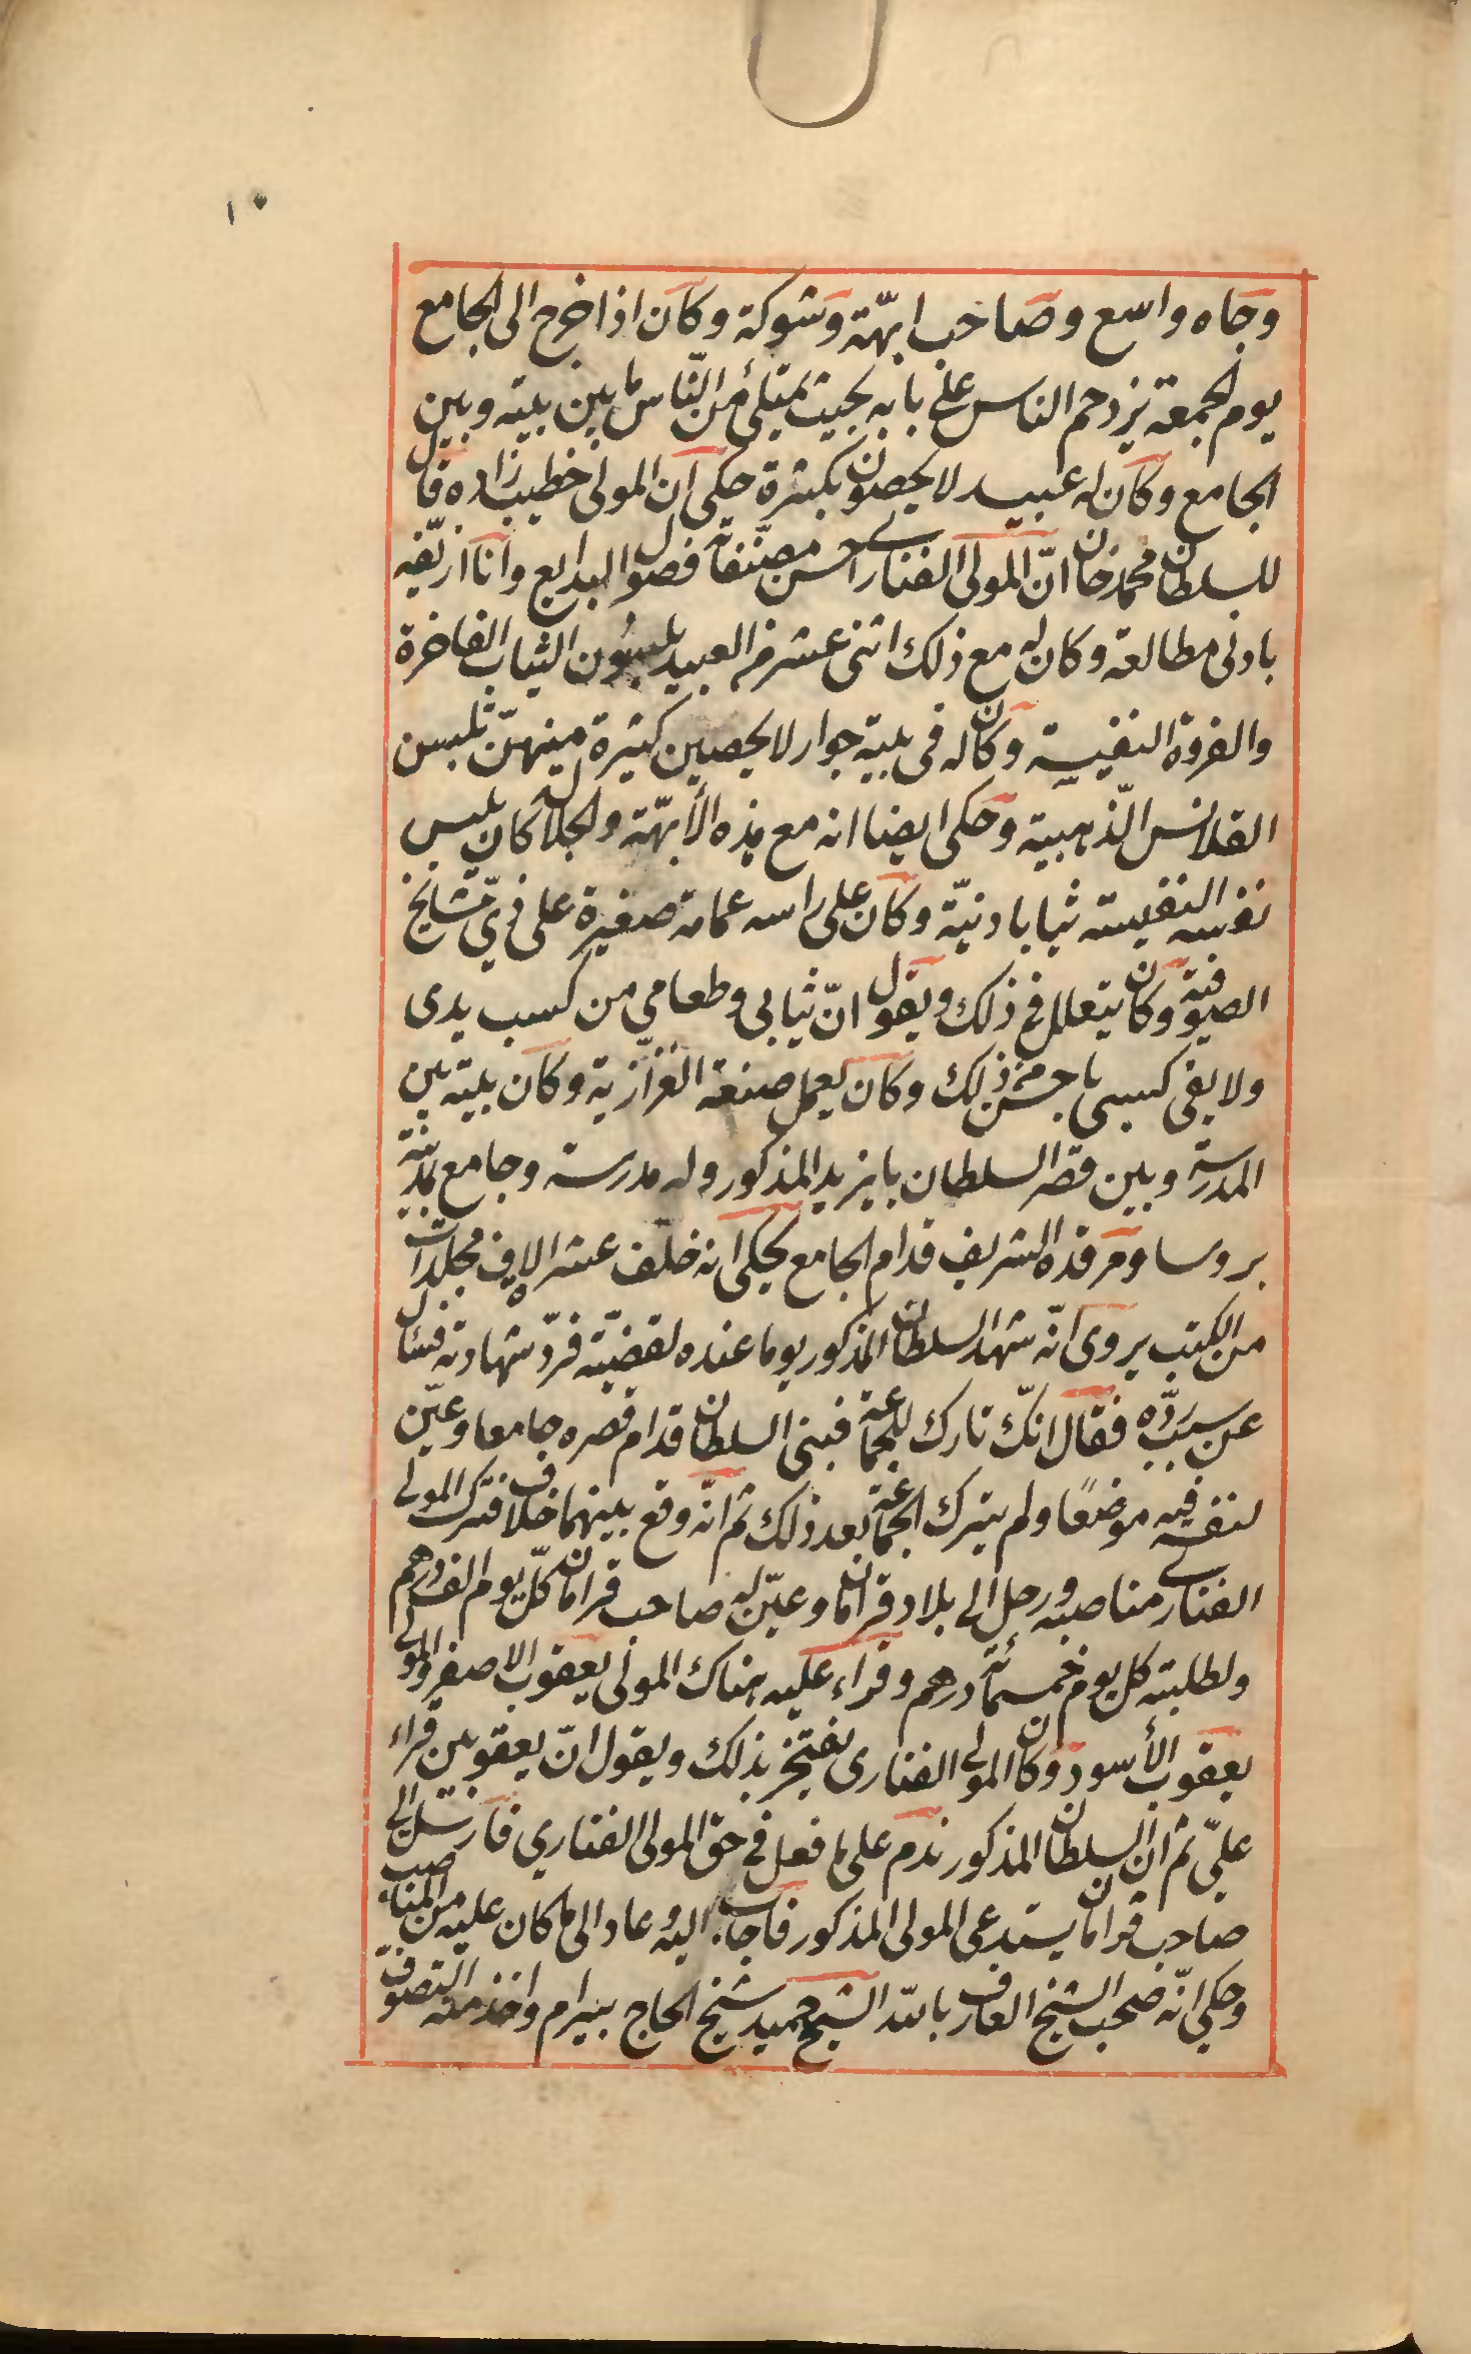 ١٠
وجاه واسع وصاحب ابهّة وشوكة وكان اذا خرج الى الجامع
يوم الجمعة يزدحم الناس على بابه بحيث يمتلئ من النّاس ما بين بيته وبين
الجامع وكان له عبيد لا يحصون بكثرة حكى ان المولى خطيب زاده قال
للسلطان محمد خان انّ المولى الفناري احسن مصنّفاته فصول البدايع وانا ازيّفه
بادنى مطالعة وكان له مع ذلك اثنى عشر من العبيد يلبسون الثياب الفاخرة
والفروة النفيسة وكان له فى بيته جوار لا يحصين كثيرة منهنّ تلبسن
القلانس الذّهبية وحكى ايضا انه مع هذه الأبهّة والجلال كان يلبس
نفسه النفيسة ثيابا دنيّة وكان على راسه عمامة صغيرة على زيّ مشايخ
الصوفية وكان يتعلل في ذلك ويقول انّ ثيابى وطعامي من كسب يدى
ولا يفى كسبى باحسن من ذلك وكان يعمل صنعة القزّازية وكان بيته بين
المدرسة وبين قصر السلطان بايزيد المذكور وله مدرسة وجامع بمدينة
بروسا ومرقده الشريف قدام الجامع يحكى انه خلف عشرة الاف مجلدات
من الكتب يروى انّه شهد السلطان المذكور يوما عنده لقضيّة فردّ شهادته فسئال
عن سبب ردّه فقال انكّ تارك للجماعة فبنى السلطان قدام قصره جامعا وعيّن
لنفسه فيه موضعًا ولم يترك الجماعة بعد ذلك ثم انّه وقع بينهما خلاف فترك المولى
الفناري مناصبه ورحل الى بلاد قرامان وعيّن له صاحب قرامان كلّ يوم الف درهم
ولطلبته كل يوم خمسمائة درهم وقراء عليه هناك المولى يعقوب الاصفر والمولى
يعقوب الأسود وكان المولى الفنارى يفتخر بذلك ويقول انّ يعقوبين قراء
عليّ ثم ان السلطان المذكور ندم على ما فعل في حق المولى الفناري فارسل الى
صاحب قرامان يستدعى المولى المذكور فاجاب اليه وعاد الى ما كان عليه من المناصب
وحكى انّه صحب الشيخ العارف بالله الشيخ حميد شيخ الحاج بيرام واخذ منه التصوف